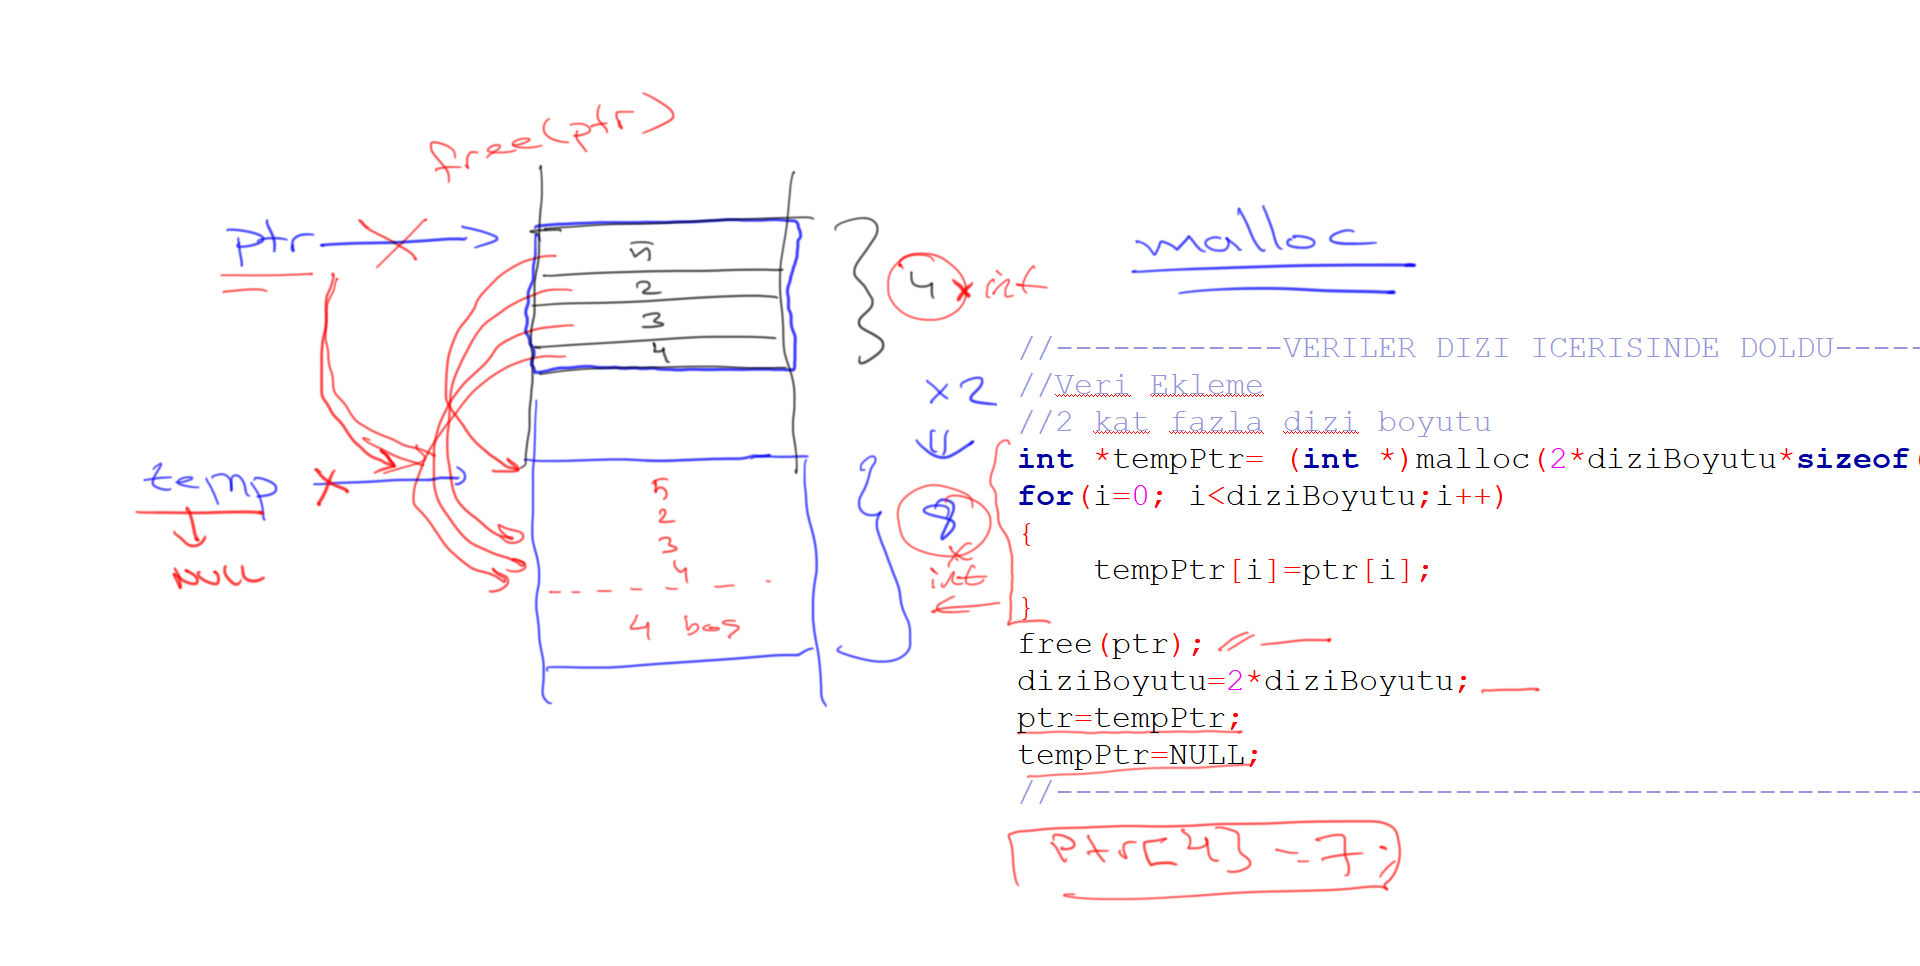 free(ptr)
ptr
5
2
3
4
4 x int
x2
temp
NULL
5
2
3
4
4 boş
8
x
int
malloc
//------------VERILER DIZI ICERISINDE DOLDU-----
//Veri Ekleme
//2 kat fazla dizi boyutu
int *tempPtr= (int *)malloc(2*diziBoyutu*sizeof(
for(i=0; i<diziBoyutu;i++)
{
tempPtr[i]=ptr[i];
}
free(ptr);
diziBoyutu=2*diziBoyutu;
ptr=tempPtr;
tempPtr=NULL;
//----------------------------------------------
ptr[4] = 7;